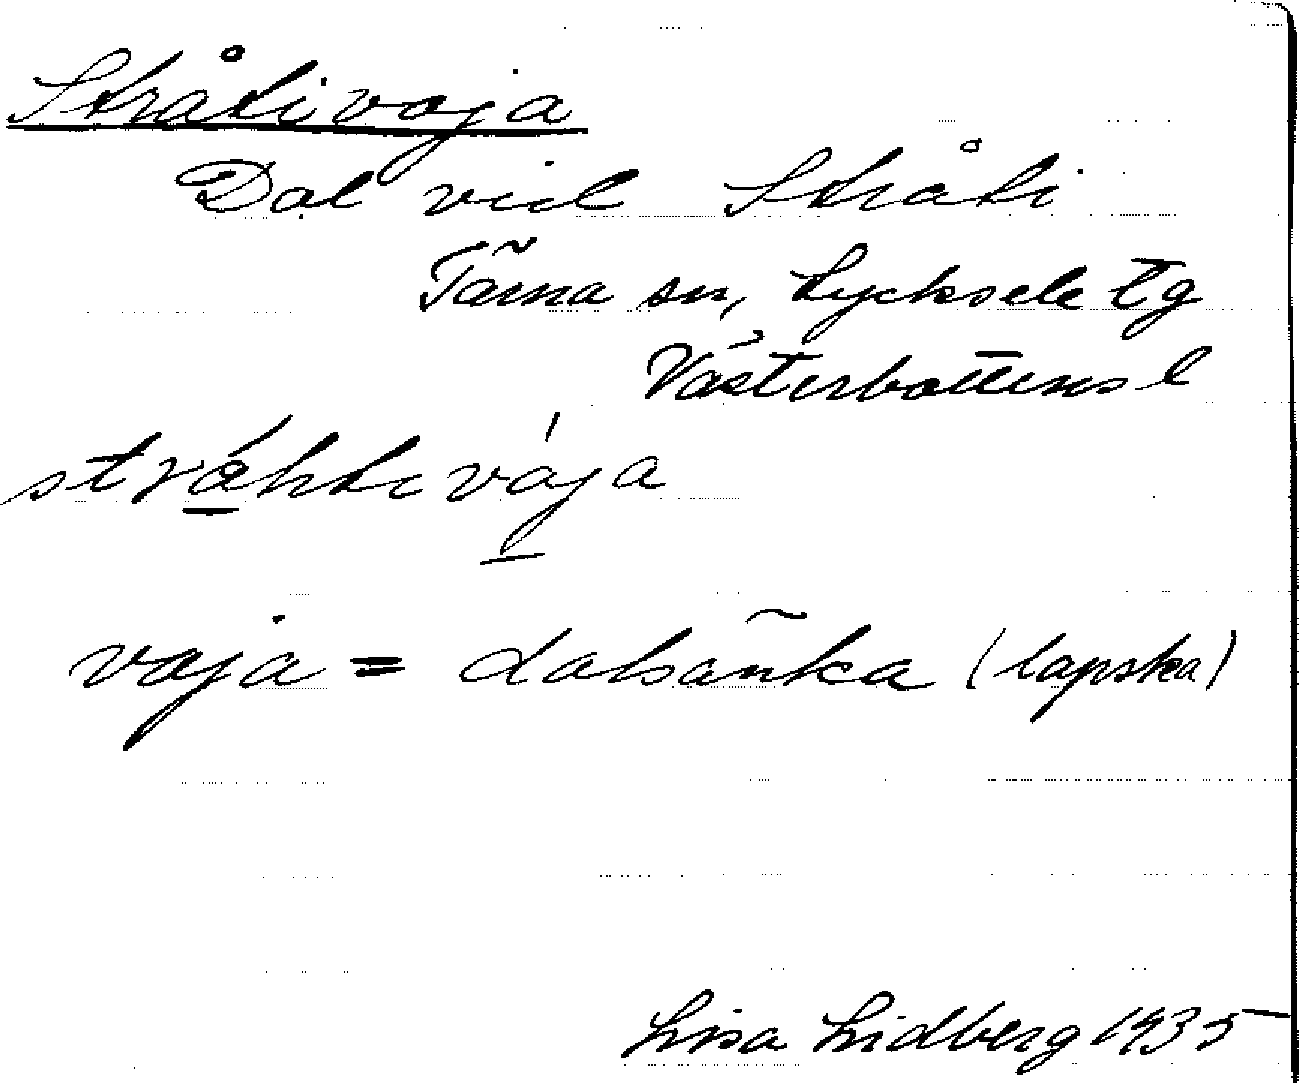 Stråtivaja
Dal vid Stråti
Tärna sn, Lycksele tg
Västerbottens l
stráhtevája
vaja = dalsänka (lapska)
Lisa Lidberg 1935